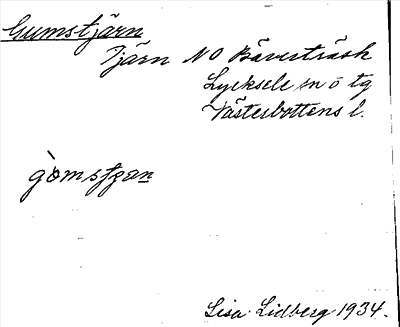 Gumstjärn
Tjärn NO Bäverträsk
Lycksele sn o tg
Västerbottens l.
gòmstjan
Lisa Lidberg 1934.